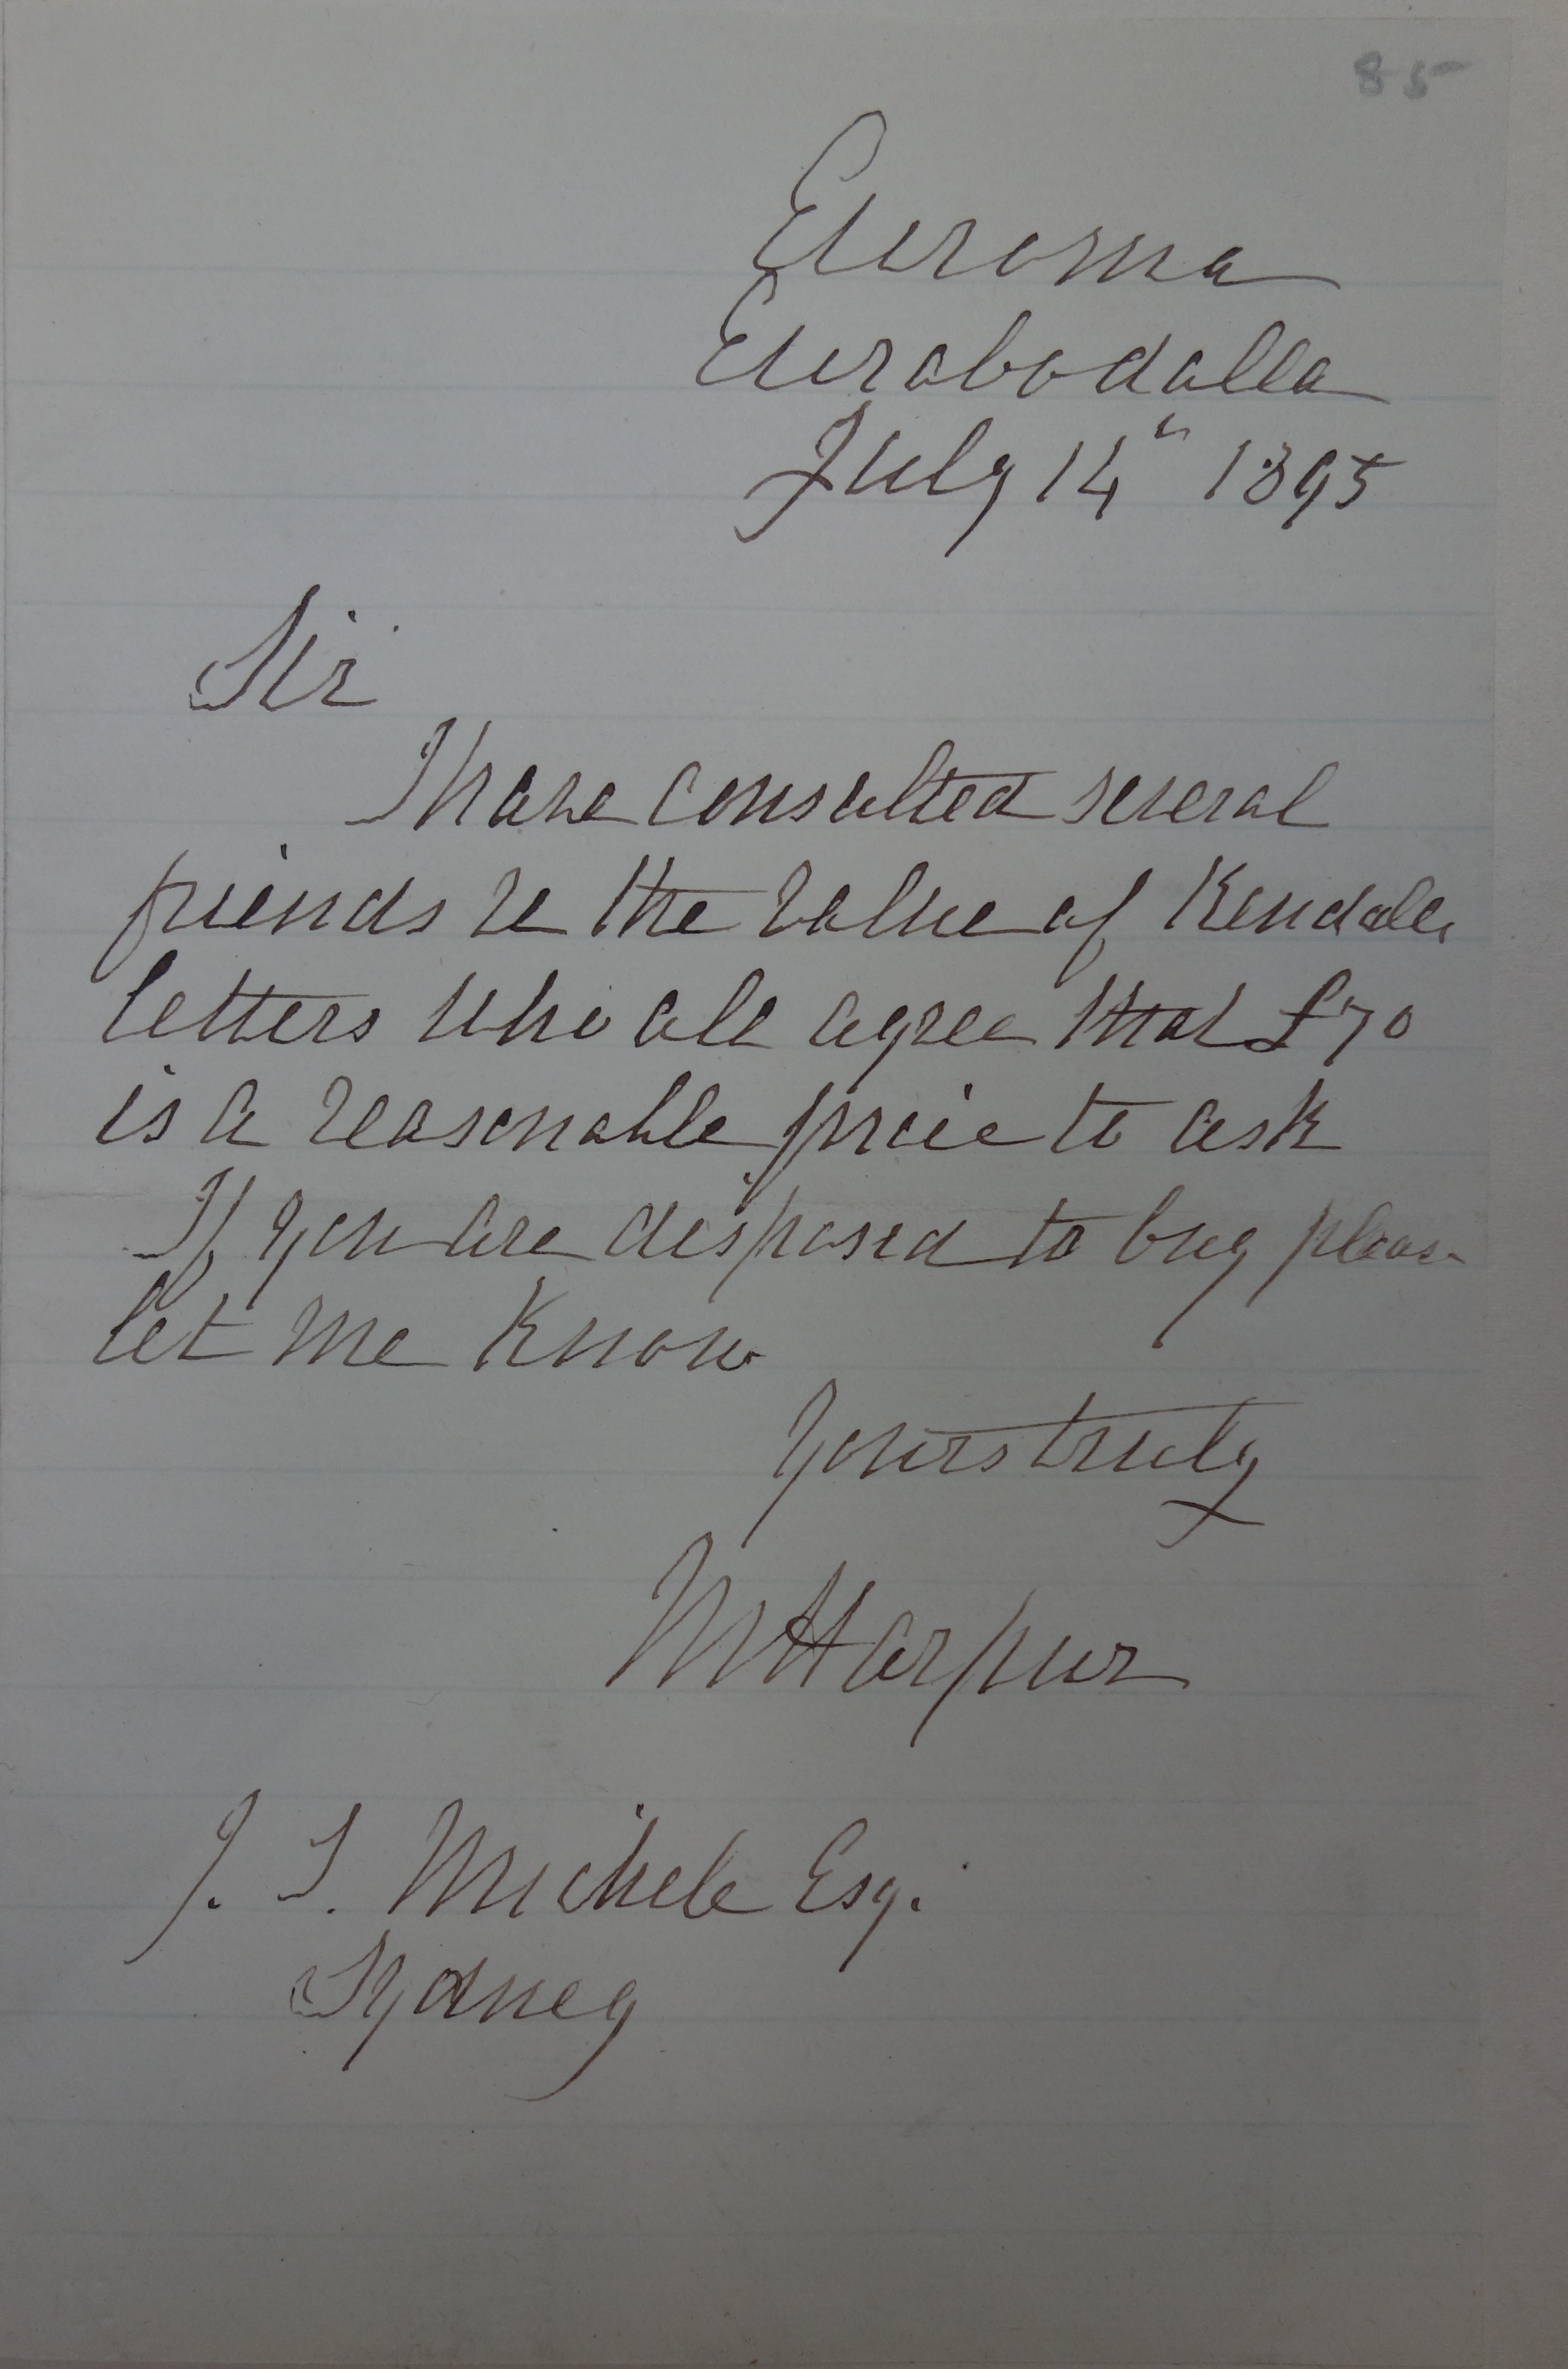 85
Euroma
Eurobodalla
July 14th 1895
Sir
I have consulted several
friends re the value of Kendalls
letters who all agree that £70
is a reasonable price to ask
If you are disposed to buy please
let me know
Yours truly
M Harpur
J. S. Michele Esq.
Sydney